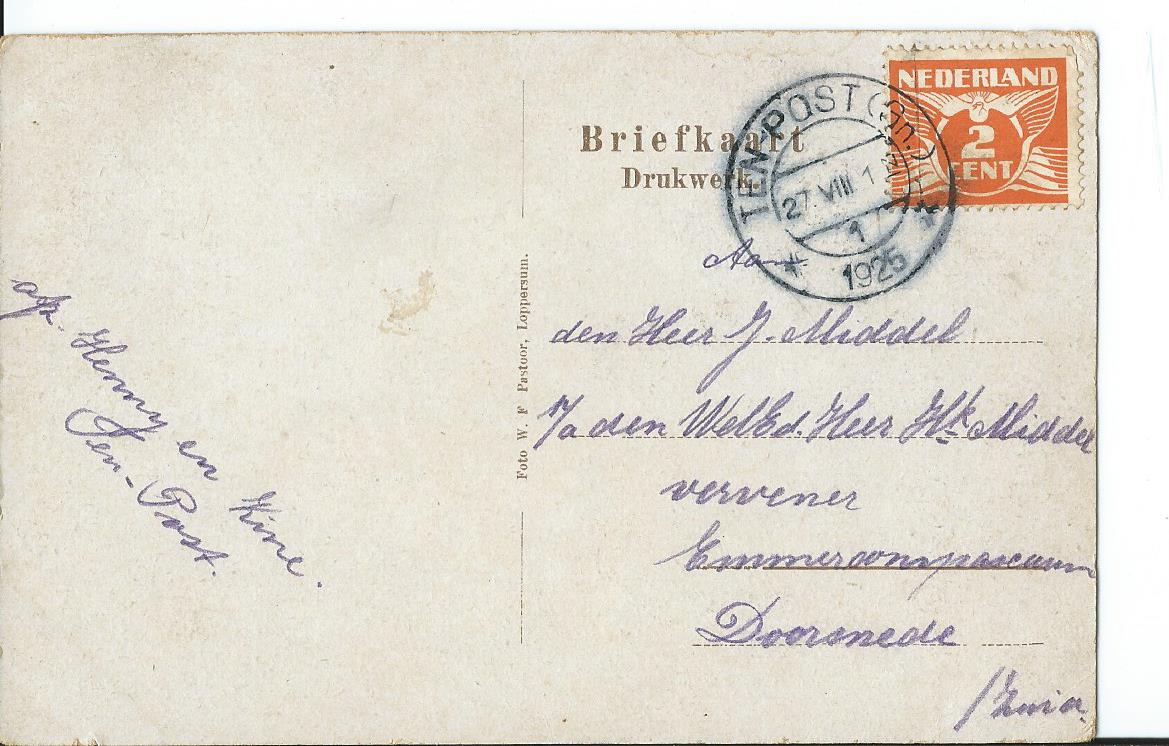 Briefkaart
Drukwerk.
NEDERLAND
2
CENT
TEN-POST (Gn.)
27.VIII 1
1
* 1925 *
Aan
den Heer J. Middel
p/a den WelEd. Heer Hk Middel
vervener
Emmercompascuum
Doorsnede
Foto W. F Pastoor, Loppersum.
afz. Henny en Kine.
Ten-Post.